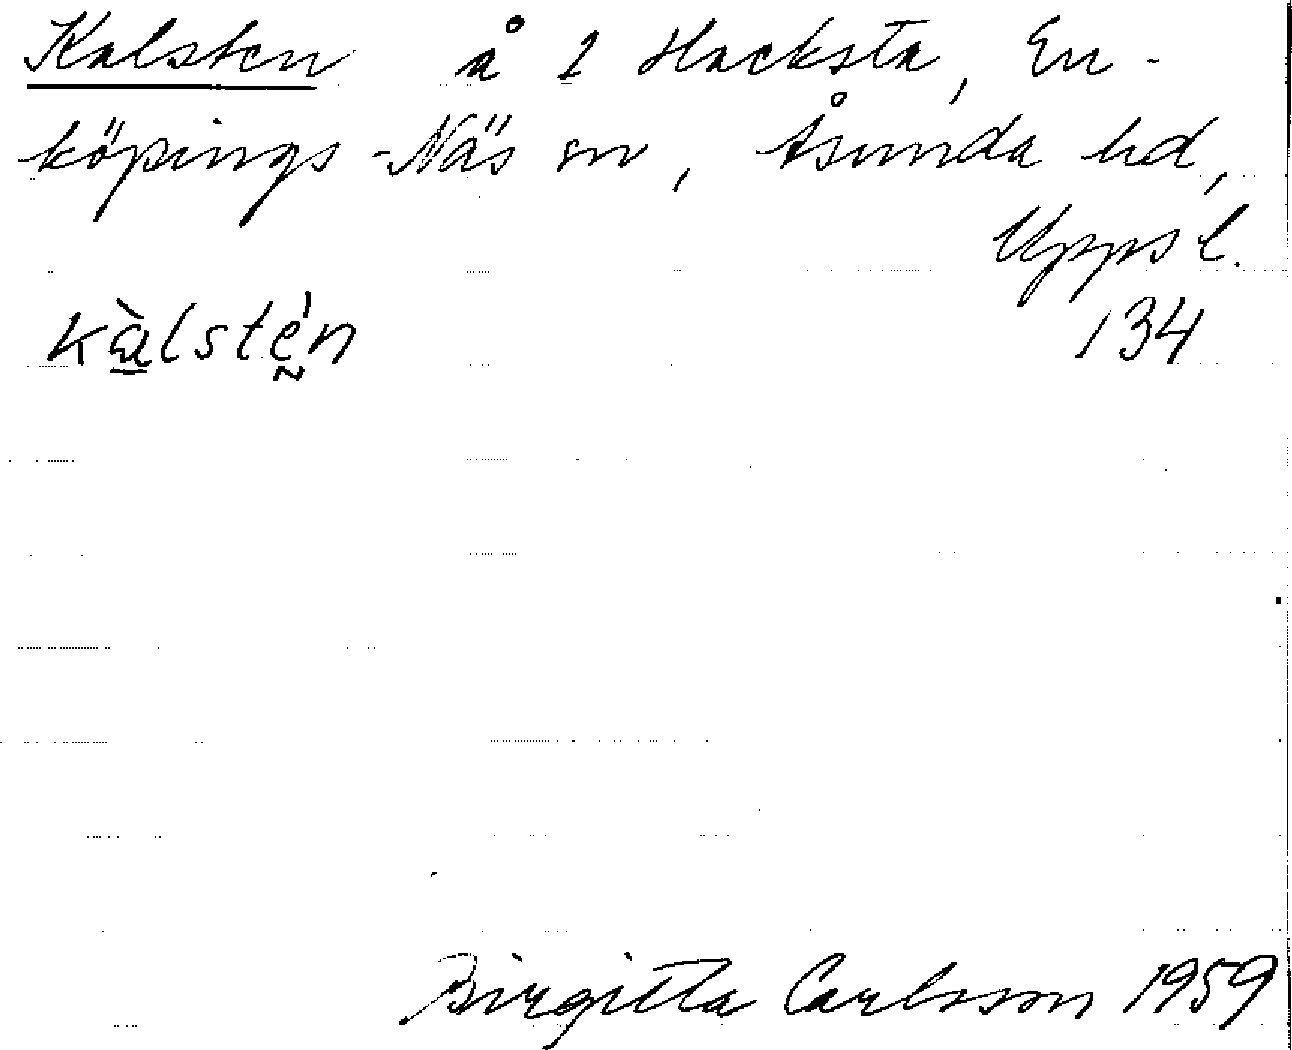 Kalsten å 1 Hacksta, En-
köpings-Näs sn, Åsunda hd,
Uppsl.
kà̲lstḛ́n 134
Birgitta Carlsson 1959